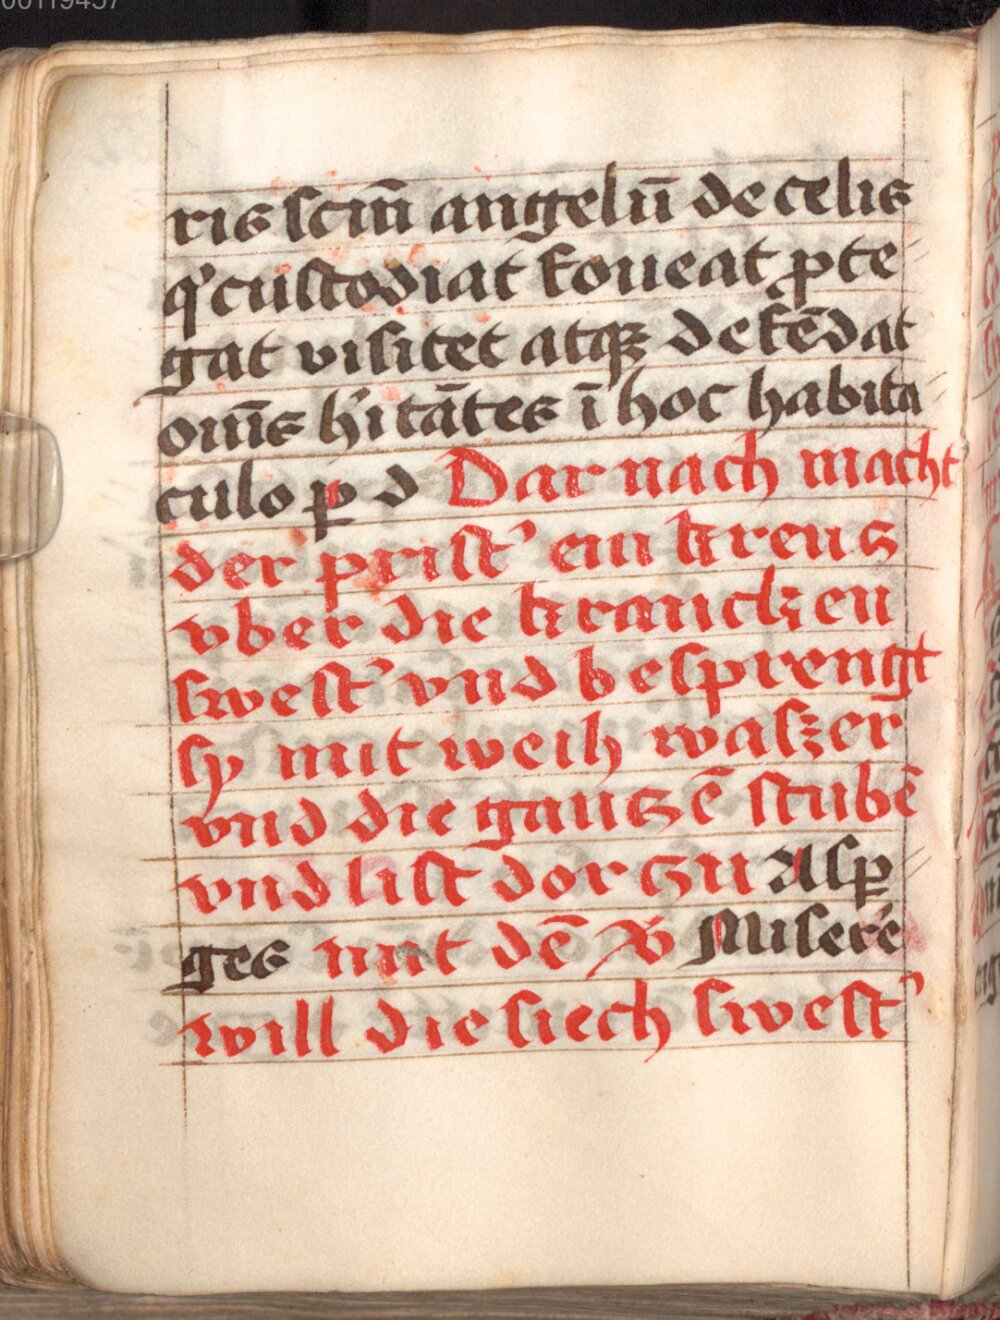 00119457
ris scm̄ angelū de celis
qͥ custodiat foueat ꝓte
gat visitet atqꝫ defēdat
om̄s hͥitātes ī hoc habita
culo ꝑ d Dar nach macht
der prist' ein kreus
vber die krancken
swest' vnd besprengt
sy mit weih waszer
vnd die gantzē stubē
vnd list dor zu Asꝑ
ges mit dē ℣ Miserē
will die siech swest'